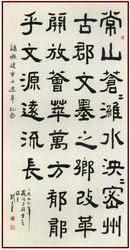 常山蒼蒼濰水泱泱密州
古郡文墨之鄉改革
開放薈萃萬方有郁
乎文源遠流長
諸城建市十週年紀念